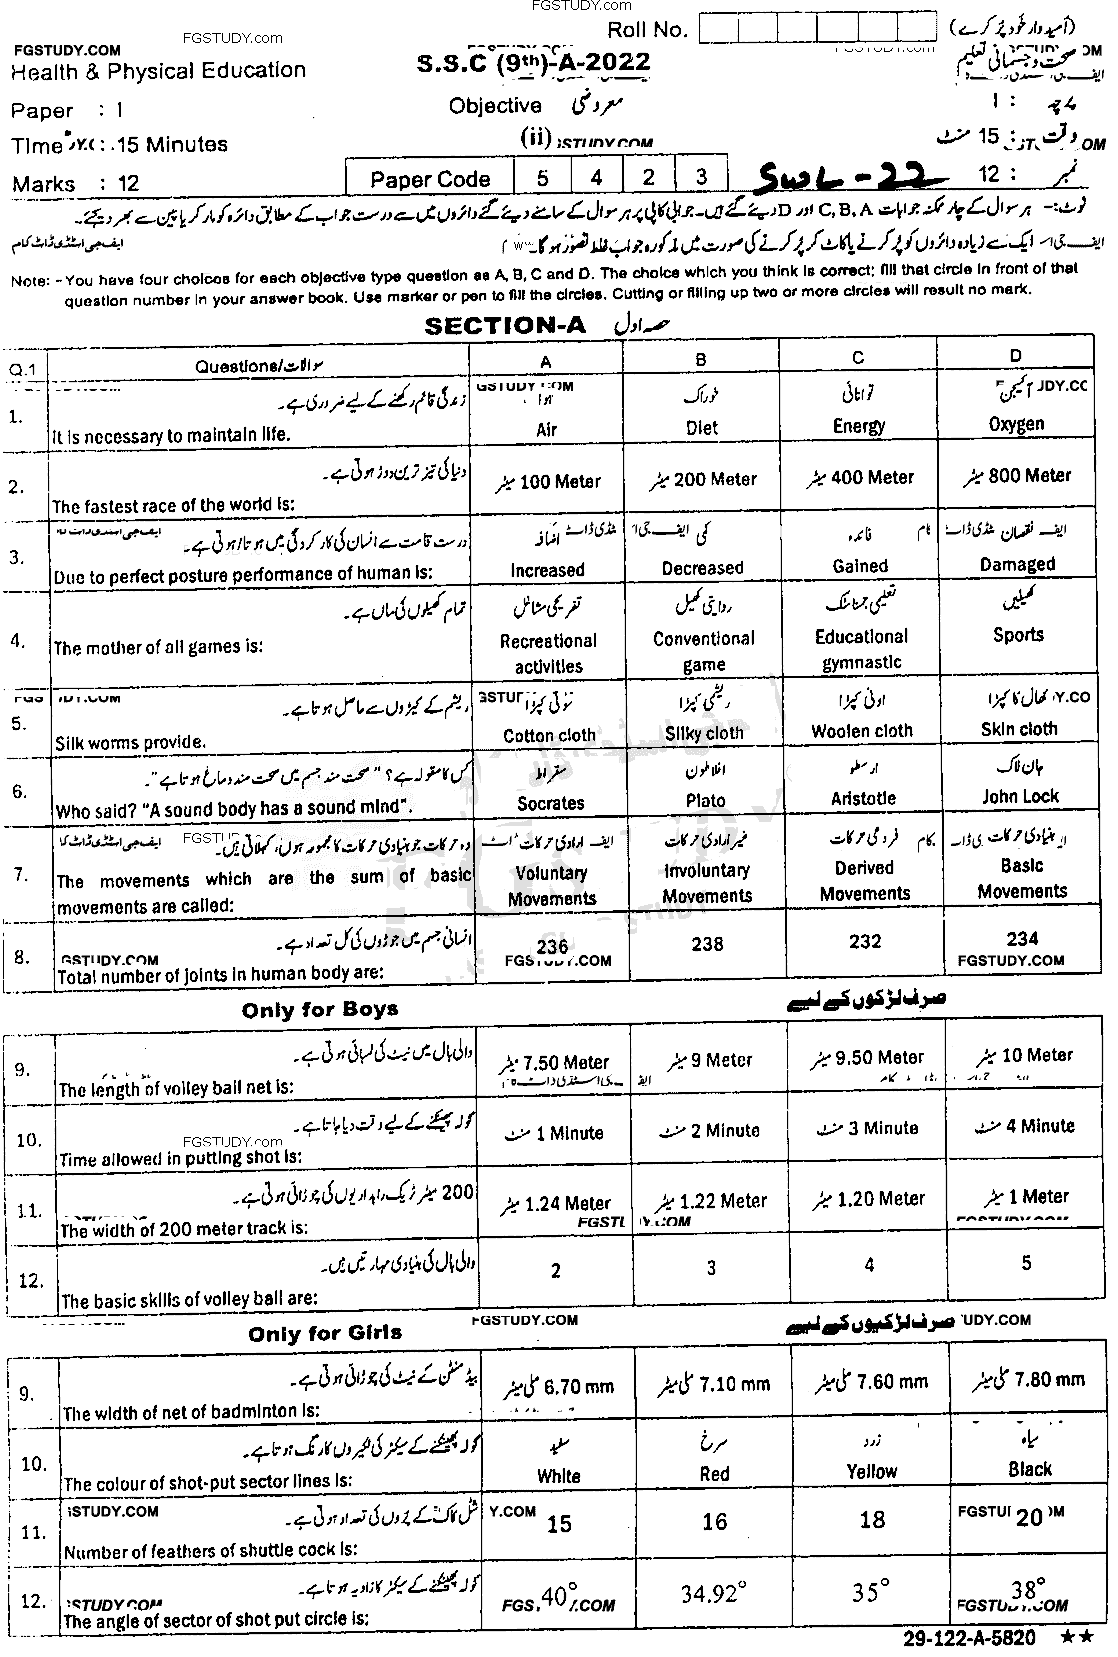 FGSTUDY.COM
Roll No. (امیدوار خود پُر کرے)
FGSTUDY.COM FGSTUDY.com
Health & Physical Education S.S.C (9th)-A-2022 صحت و جسمانی تعلیم
Paper : 1 Objective معروضی پرچہ : 1
Time : 15 Minutes (ii) وقت 15 منٹ
Marks : 12 Paper Code 5 4 2 3 SWL-22 نمبر : 12
نوٹ:- ہر سوال کے چار ممکنہ جوابات A, B, C اور D دیئے گئے ہیں۔ جوابی کاپی پر ہر سوال کے سامنے دیئے گئے دائروں میں سے درست جواب کے مطابق دائرہ کو مارکر یا پین سے بھر دیجئے۔
ایک سے زیادہ دائروں کو پُر کرنے یا کاٹ کر پُر کرنے کی صورت میں مذکورہ جواب غلط تصور ہو گا۔
Note: - You have four choices for each objective type question as A, B, C and D. The choice which you think is correct; fill that circle in front of that
question number in your answer book. Use marker or pen to fill the circles. Cutting or filling up two or more circles will result no mark.
SECTION-A حصہ اول
Q.1 Questions/سوالات A B C D
1. زندگی قائم رکھنے کے لیے ضروری ہے۔ ہوا خوراک توانائی آکسیجن
It is necessary to maintain life. Air Diet Energy Oxygen
2. دنیا کی تیز ترین دوڑ ہوتی ہے۔ 100 Meter میٹر 200 Meter میٹر 400 Meter میٹر 800 Meter میٹر
The fastest race of the world is:
3. درست قامت سے انسان کی کارکردگی میں ہوتا/ہوتی ہے۔ اضافہ کمی فائدہ نقصان
Due to perfect posture performance of human is: Increased Decreased Gained Damaged
4. تمام کھیلوں کی ماں ہے۔ تفریحی مشاغل روایتی کھیل تعلیمی جمناسٹک کھیلیں
The mother of all games is: Recreational Conventional Educational Sports
activities game gymnastic
5. ریشم کے کیڑوں سے حاصل ہوتا ہے۔ سوتی کپڑا ریشمی کپڑا اونی کپڑا کھال کا کپڑا
Silk worms provide. Cotton cloth Silky cloth Woolen cloth Skin cloth
6. کس کا مقولہ ہے؟ "صحت مند جسم میں صحت مند دماغ ہوتا ہے"۔ سقراط افلاطون ارسطو جان لاک
Who said? "A sound body has a sound mind". Socrates Plato Aristotle John Lock
7. وہ حرکات جو بنیادی حرکات کا مجموعہ ہوں، کہلاتی ہیں۔ ارادی حرکات غیر ارادی حرکات فروعی حرکات بنیادی حرکات
The movements which are the sum of basic Voluntary Involuntary Derived Basic
movements are called: Movements Movements Movements Movements
8. انسانی جسم میں جوڑوں کی کل تعداد ہے۔ 236 238 232 234
FGSTUDY.COM FGSTUDY.COM
Total number of joints in human body are:
Only for Boys صرف لڑکوں کے لیے
9. والی بال میں نیٹ کی لمبائی ہوتی ہے۔ 7.50 Meter میٹر 9 Meter میٹر 9.50 Meter میٹر 10 Meter میٹر
The length of volley ball net is:
10. گولہ پھینکنے کے لیے وقت دیا جاتا ہے۔ 1 Minute منٹ 2 Minute منٹ 3 Minute منٹ 4 Minute منٹ
FGSTUDY.com
Time allowed in putting shot is:
11. 200 میٹر ٹریک راہداریوں کی چوڑائی ہوتی ہے۔ 1.24 Meter میٹر 1.22 Meter میٹر 1.20 Meter میٹر 1 Meter میٹر
The width of 200 meter track is:
12. والی بال کی بنیادی مہارتیں ہیں۔ 2 3 4 5
The basic skills of volley ball are:
FGSTUDY.COM
Only for Girls صرف لڑکیوں کے لیے
9. بیڈمنٹن کے نیٹ کی چوڑائی ہوتی ہے۔ 6.70 mm ملی میٹر 7.10 mm ملی میٹر 7.60 mm ملی میٹر 7.80 mm ملی میٹر
The width of net of badminton is:
10. گولہ پھینکنے کے سیکٹر کی لکیروں کا رنگ ہوتا ہے۔ سفید سرخ زرد سیاہ
The colour of shot-put sector lines is: White Red Yellow Black
11. شٹل کاک کے پروں کی تعداد ہوتی ہے۔ 15 16 18 20
Number of feathers of shuttle cock is:
12. گولہ پھینکنے کے سیکٹر کا زاویہ ہوتا ہے۔ 40° 34.92° 35° 38°
The angle of sector of shot put circle is: FGSTUDY.COM
29-122-A-5820 ★★